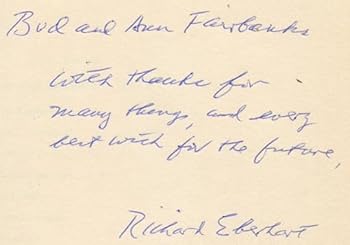 Bud and Ann Fairbanks
with thanks for
many things, and every
best wish for the future,
Richard Eberhart